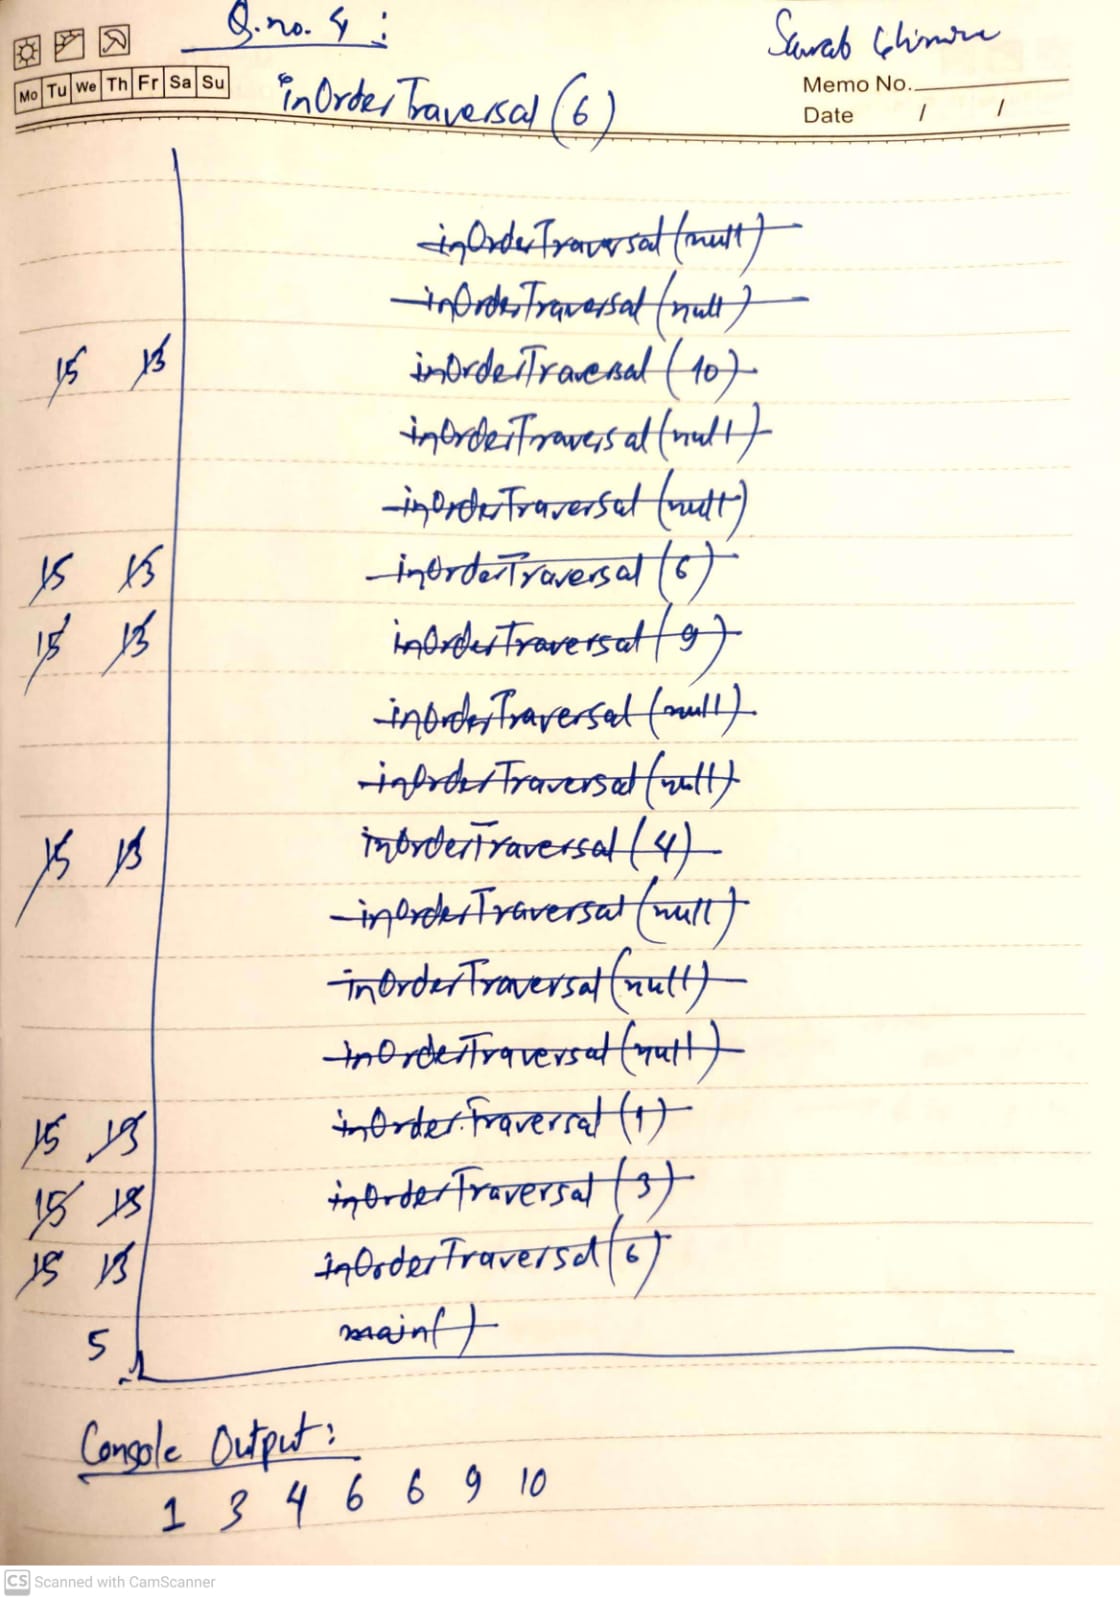 Q.no. 4 :
Mo Tu We Th Fr Sa Su
inOrderTraversal (6)
Memo No.
Date / /
inOrderTraversal (null)
inOrderTraversal (null)
15 13 inOrderTraversal (10)
inOrderTraversal (null)
inOrderTraversal (null)
15 13 inOrderTraversal (6)
15 13 inOrderTraversal (9)
inOrderTraversal (null)
inOrderTraversal (null)
15 13 inOrderTraversal (4)
inOrderTraversal (null)
inOrderTraversal (null)
inOrderTraversal (null)
15 13 inOrderTraversal (1)
15 13 inOrderTraversal (3)
15 13 inOrderTraversal (6)
5 main()
Console Output:
1 3 4 6 6 9 10
CS Scanned with CamScanner